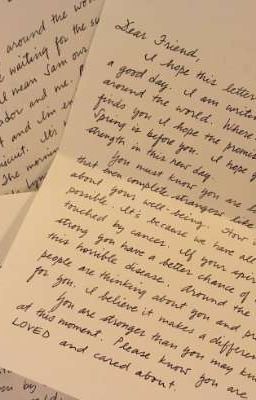 around the wor
e waiting for the su
I mean Sam our
ador and me. P
t and I'm en
The mornin
Dear Friend,
I hope this letter
a good day. I am writin
around the world. Where
finds you I hope the promis
Spring is before you. I hope y
strength in this new day.
You must know you are L
that even complete strangers like
about your well-being. How
possible. It's because we have all
touched by cancer. If your spir
strong you have a better chance of
this horrible disease. Around the
people are thinking about you and pr
for you. I believe it makes a differen
You are stronger than you may know
at this moment. Please know you are
LOVED and cared about.